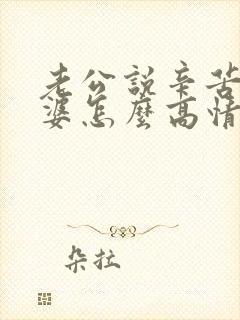 老公說辛苦
婆怎麼高情
朵拉